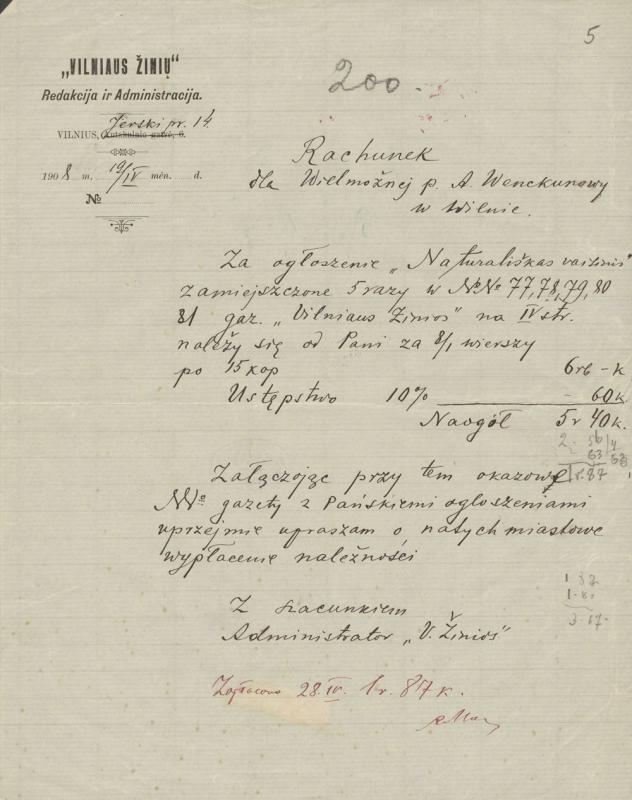 5
200.
„VILNIAUS ŽINIŲ“
Redakcija ir Administracija.
pr. 14
VILNIUS, Antakalnio gatvė, 6.
1908 m. 19/IV mėn. d.
№
Rachunek
dla Wielmožnej p. A. Wenckunowy
w Wilnie.
Za ogłoszenie „Naturališkas vaizinis“
zamiejszczone 5 razy w №№ 77, 78, 79, 80
81 gaz. „Vilniaus Žinios“ na IV str.
należy się od Pani za 8/1 wierszy
po 15 kop 6 rb - k
Ustępstwo 10% - 60 k.
Naogół 5 r 40 k.
Załączojąc przy tem okazowe
№№ gazety z Pańskiemi ogłoszeniami
uprzejmie upraszam o natychmiastowe
wypłacenie należności
1.87
3.17.
Z szacunkiem
Administrator „V. Žinios“
Zapłacono 28.IV. 1 r. 87 k.